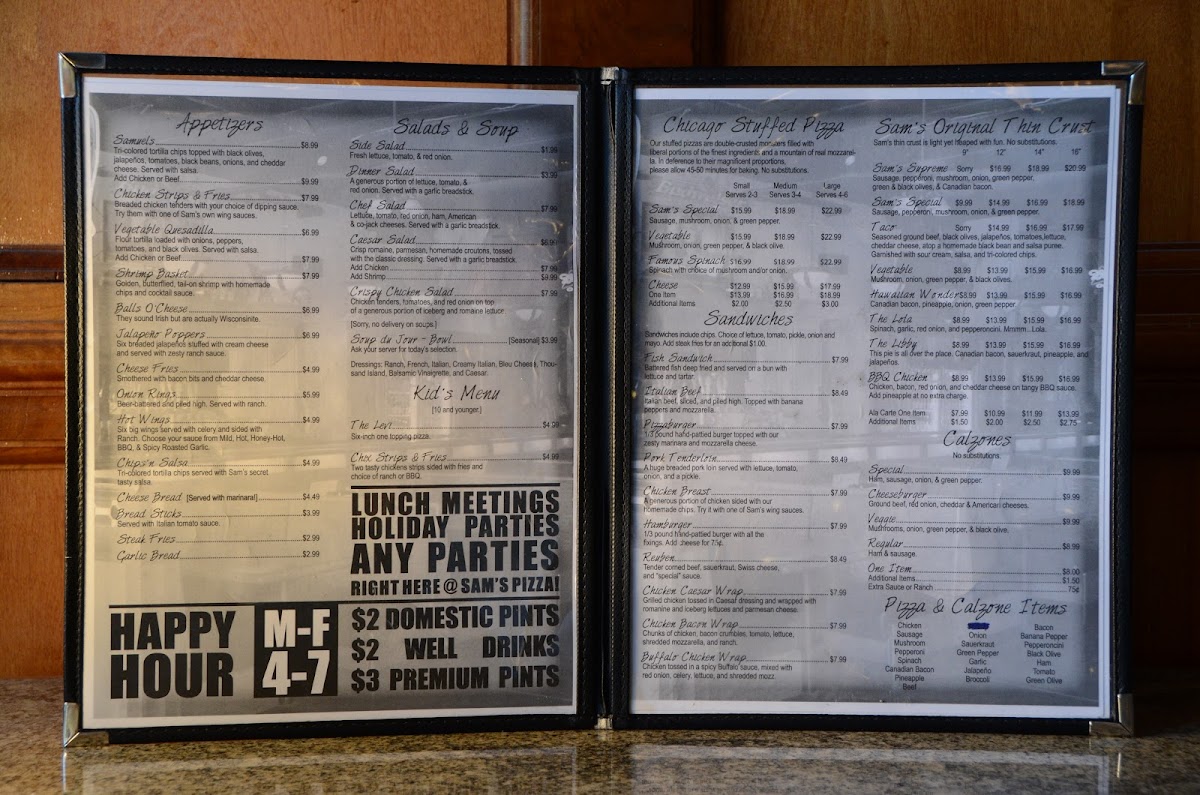 Appetizers
Samuels $8.99
Tri-colored tortilla chips topped with black olives,
jalapeños, tomatoes, black beans, onions, and cheddar
cheese. Served with salsa.
Add Chicken or Beef $9.99
Chicken Strips & Fries $7.99
Breaded chicken tenders with your choice of dipping sauce.
Try them with one of Sam's own wing sauces.
Vegetable Quesadilla $6.99
Flour tortilla loaded with onions, peppers,
tomatoes, and black olives. Served with salsa.
Add Chicken or Beef $7.99
Shrimp Basket $7.99
Golden, butterflied, tail-on shrimp with homemade
chips and cocktail sauce.
Balls O'Cheese $6.99
They sound Irish but are actually Wisconsinite.
Jalapeño Poppers $6.99
Six breaded jalapeños stuffed with cream cheese
and served with zesty ranch sauce.
Cheese Fries $4.99
Smothered with bacon bits and cheddar cheese.
Onion Rings $5.99
Beer-battered and piled high. Served with ranch.
Hot Wings $4.99
Six big wings served with celery and sided with
Ranch. Choose your sauce from Mild, Hot, Honey-Hot,
BBQ, & Spicy Roasted Garlic.
Chips'n Salsa $4.99
Tri-colored tortilla chips served with Sam's secret
tasty salsa.
Cheese Bread [Served with marinara!] $4.49
Bread Sticks $3.99
Served with Italian tomato sauce.
Steak Fries $2.99
Garlic Bread $2.99
Salads & Soup
Side Salad $1.99
Fresh lettuce, tomato, & red onion.
Dinner Salad $3.99
A generous portion of lettuce, tomato, &
red onion. Served with a garlic breadstick.
Chef Salad $7.99
Lettuce, tomato, red onion, ham, American
& co-jack cheeses. Served with a garlic breadstick.
Caesar Salad $6.99
Crisp romaine, parmesan, homemade croutons, tossed
with the classic dressing. Served with a garlic breadstick.
Add Chicken $7.99
Add Shrimp $9.99
Crispy Chicken Salad $7.99
Chicken tenders, tomatoes, and red onion on top
of a generous portion of iceberg and romaine lettuce.
[Sorry, no delivery on soups.]
Soup du Jour - Bowl [Seasonal] $3.99
Ask your server for today's selection.
Dressings: Ranch, French, Italian, Creamy Italian, Bleu Cheese, Thou-
sand Island, Balsamic Vinaigrette, and Caesar.
Kid's Menu
[10 and younger.]
The Levi $4.99
Six-inch one topping pizza.
Chix Strips & Fries $4.99
Two tasty chickens strips sided with fries and
choice of ranch or BBQ.
LUNCH MEETINGS
HOLIDAY PARTIES
ANY PARTIES
RIGHT HERE @ SAM'S PIZZA!
HAPPY HOUR
M-F
4-7
$2 DOMESTIC PINTS
$2 WELL DRINKS
$3 PREMIUM PINTS
Chicago Stuffed Pizza
Our stuffed pizzas are double-crusted monsters filled with
liberal portions of the finest ingredients and a mountain of real mozzarel-
la. In deference to their magnificent proportions,
please allow 45-50 minutes for baking. No substitutions.
Small Medium Large
Serves 2-3 Serves 3-4 Serves 4-6
Sam's Special $15.99 $18.99 $22.99
Sausage, mushroom, onion, & green pepper.
Vegetable $15.99 $18.99 $22.99
Mushroom, onion, green pepper, & black olive.
Famous Spinach $16.99 $18.99 $22.99
Spinach with choice of mushroom and/or onion.
Cheese $12.99 $15.99 $17.99
One Item $13.99 $16.99 $18.99
Additional Items $2.00 $2.50 $3.00
Sandwiches
Sandwiches include chips. Choice of lettuce, tomato, pickle, onion and
mayo. Add steak fries for an additional $1.00.
Fish Sandwich $7.99
Battered fish deep fried and served on a bun with
lettuce and tartar.
Italian Beef $8.49
Italian beef, sliced, and piled high. Topped with banana
peppers and mozzarella.
Pizzaburger $7.99
1/3 pound hand-pattied burger topped with our
zesty marinara and mozzarella cheese.
Pork Tenderloin $8.49
A huge breaded pork loin served with lettuce, tomato,
onion, and a pickle.
Chicken Breast $7.99
A generous portion of chicken sided with our
homemade chips. Try it with one of Sam's wing sauces.
Hamburger $7.99
1/3 pound hand-pattied burger with all the
fixings. Add cheese for 75¢.
Reuben $8.49
Tender corned beef, sauerkraut, Swiss cheese,
and "special" sauce.
Chicken Caesar Wrap $7.99
Grilled chicken tossed in Caesar dressing and wrapped with
romanine and iceberg lettuces and parmesan cheese.
Chicken Bacon Wrap $7.99
Chunks of chicken, bacon crumbles, tomato, lettuce,
shredded mozzarella, and ranch.
Buffalo Chicken Wrap $7.99
Chicken tossed in a spicy Buffalo sauce, mixed with
red onion, celery, lettuce, and shredded mozz.
Sam's Original Thin Crust
Sam's thin crust is light yet heaped with fun. No substitutions.
9" 12" 14" 16"
Sam's Supreme Sorry $16.99 $18.99 $20.99
Sausage, pepperoni, mushroom, onion, green pepper,
green & black olives, & Canadian bacon.
Sam's Special $9.99 $14.99 $16.99 $18.99
Sausage, pepperoni, mushroom, onion, & green pepper.
Taco Sorry $14.99 $16.99 $17.99
Seasoned ground beef, black olives, jalapeños, tomatoes,lettuce,
cheddar cheese, atop a homemade black bean and salsa puree.
Garnished with sour cream, salsa, and tri-colored chips.
Vegetable $8.99 $13.99 $15.99 $16.99
Mushroom, onion, green pepper, & black olives.
Hawaiian Wonder $8.99 $13.99 $15.99 $16.99
Canadian bacon, pineapple, onion, green pepper.
The Lola $8.99 $13.99 $15.99 $16.99
Spinach, garlic, red onion, and pepperoncini. Mmmm... Lola.
The Libby $8.99 $13.99 $15.99 $16.99
This pie is all over the place. Canadian bacon, sauerkraut, pineapple, and
jalapeños.
BBQ Chicken $8.99 $13.99 $15.99 $16.99
Chicken, bacon, red onion, and cheddar cheese on tangy BBQ sauce.
Add pineapple at no extra charge.
Ala Carte One Item $7.99 $10.99 $11.99 $13.99
Additional Items $1.50 $2.00 $2.50 $2.75
Calzones
No substitutions.
Special $9.99
Ham, sausage, onion, & green pepper.
Cheeseburger $9.99
Ground beef, red onion, cheddar & American cheeses.
Veggie $9.99
Mushrooms, onion, green pepper, & black olive.
Regular $8.99
Ham & sausage.
One Item $8.00
Additional Items $1.50
Extra Sauce or Ranch 75¢
Pizza & Calzone Items
Chicken
Sausage
Mushroom
Pepperoni
Spinach
Canadian Bacon
Pineapple
Beef
Onion
Sauerkraut
Green Pepper
Garlic
Jalapeño
Broccoli
Bacon
Banana Pepper
Pepperoncini
Black Olive
Ham
Tomato
Green Olive